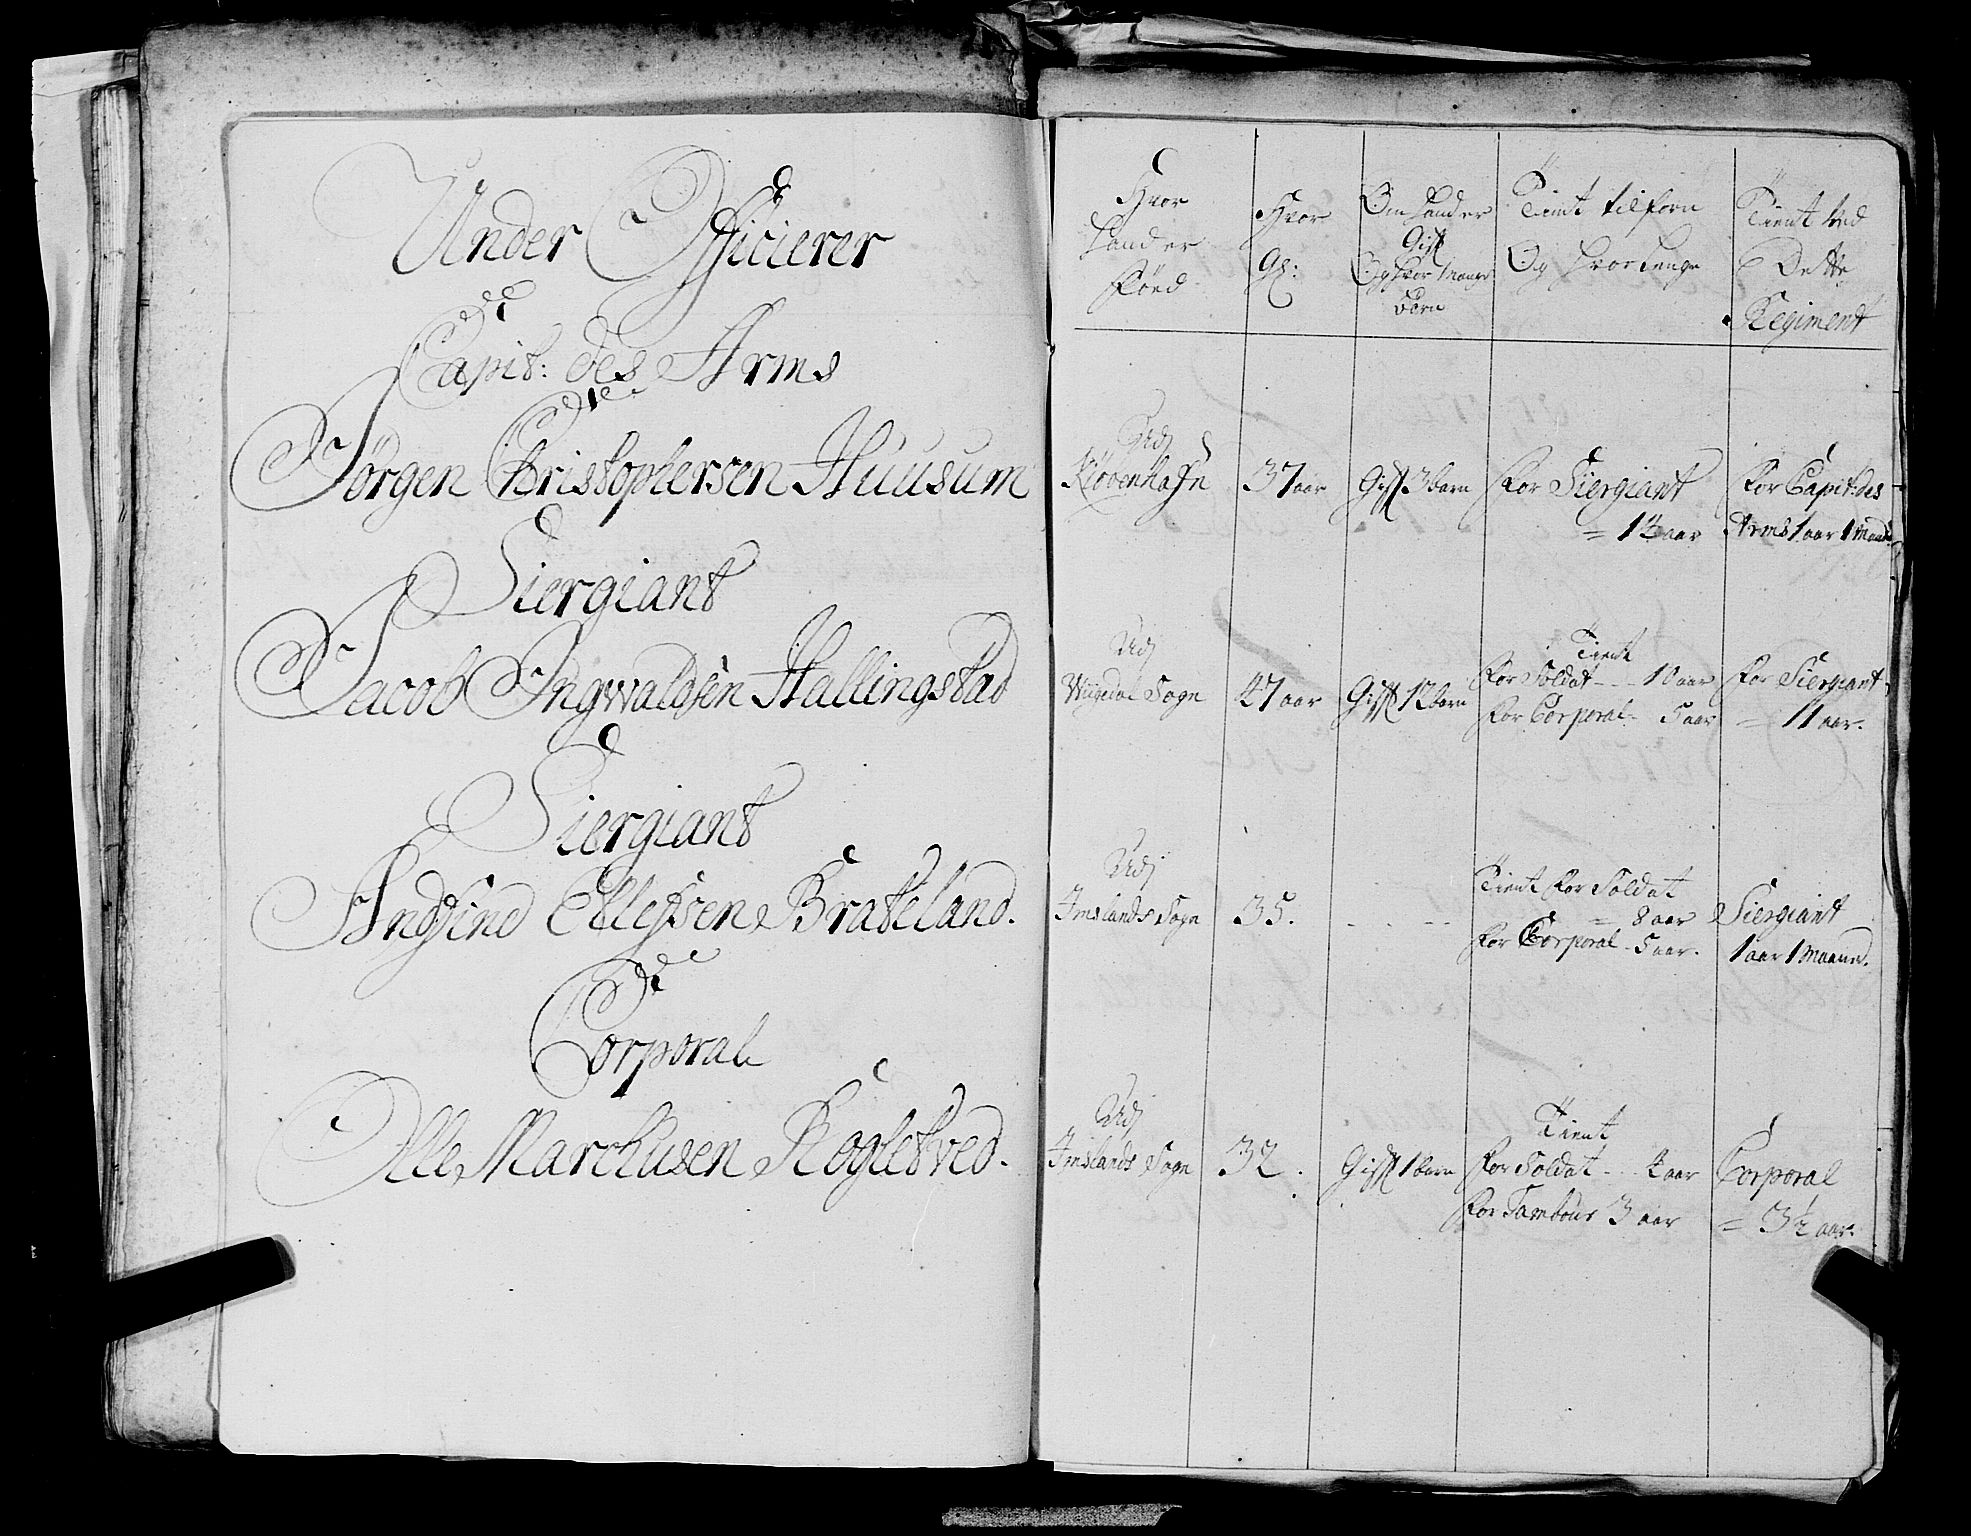 Under Officierer
Capit: des Arms
Jørgen Christophersen Huusum
Siergiant
Jacob Ingwaldsen Hallingstad
Siergiant
Corporal
Olle Marchusen
Hvor
Hand er
Føed
Hvor
Gl:
Om Hand er
Gift
Og Hvor Mange
Børn
Tient tilforn
Og Hvor Lenge
Tient Ved
Dette
Regiment
Udj
Kiøbenhafn
37 aar
Gift 3 barn
For Siergiant
aar
For Capit: des
Arms 1 aar 1 Maaned
Udj
Sogn
47 aar
Gift 12 barn
Tient
For Soldat - - 10 aar
For Corporal - 5 aar
For Siergiant
= 11 aar.
Udj
Imslands Sogn
35.
Tient For Soldat
= 8 aar
For Corporal - 5 aar.
Siergiant
1 aar 1 Maaned.
Udj
Imslands Sogn
32.
Gift 1 barn
Tient
For Soldat - - 4 aar
For Tambour 3 aar
Corporal
= 3½ aar.